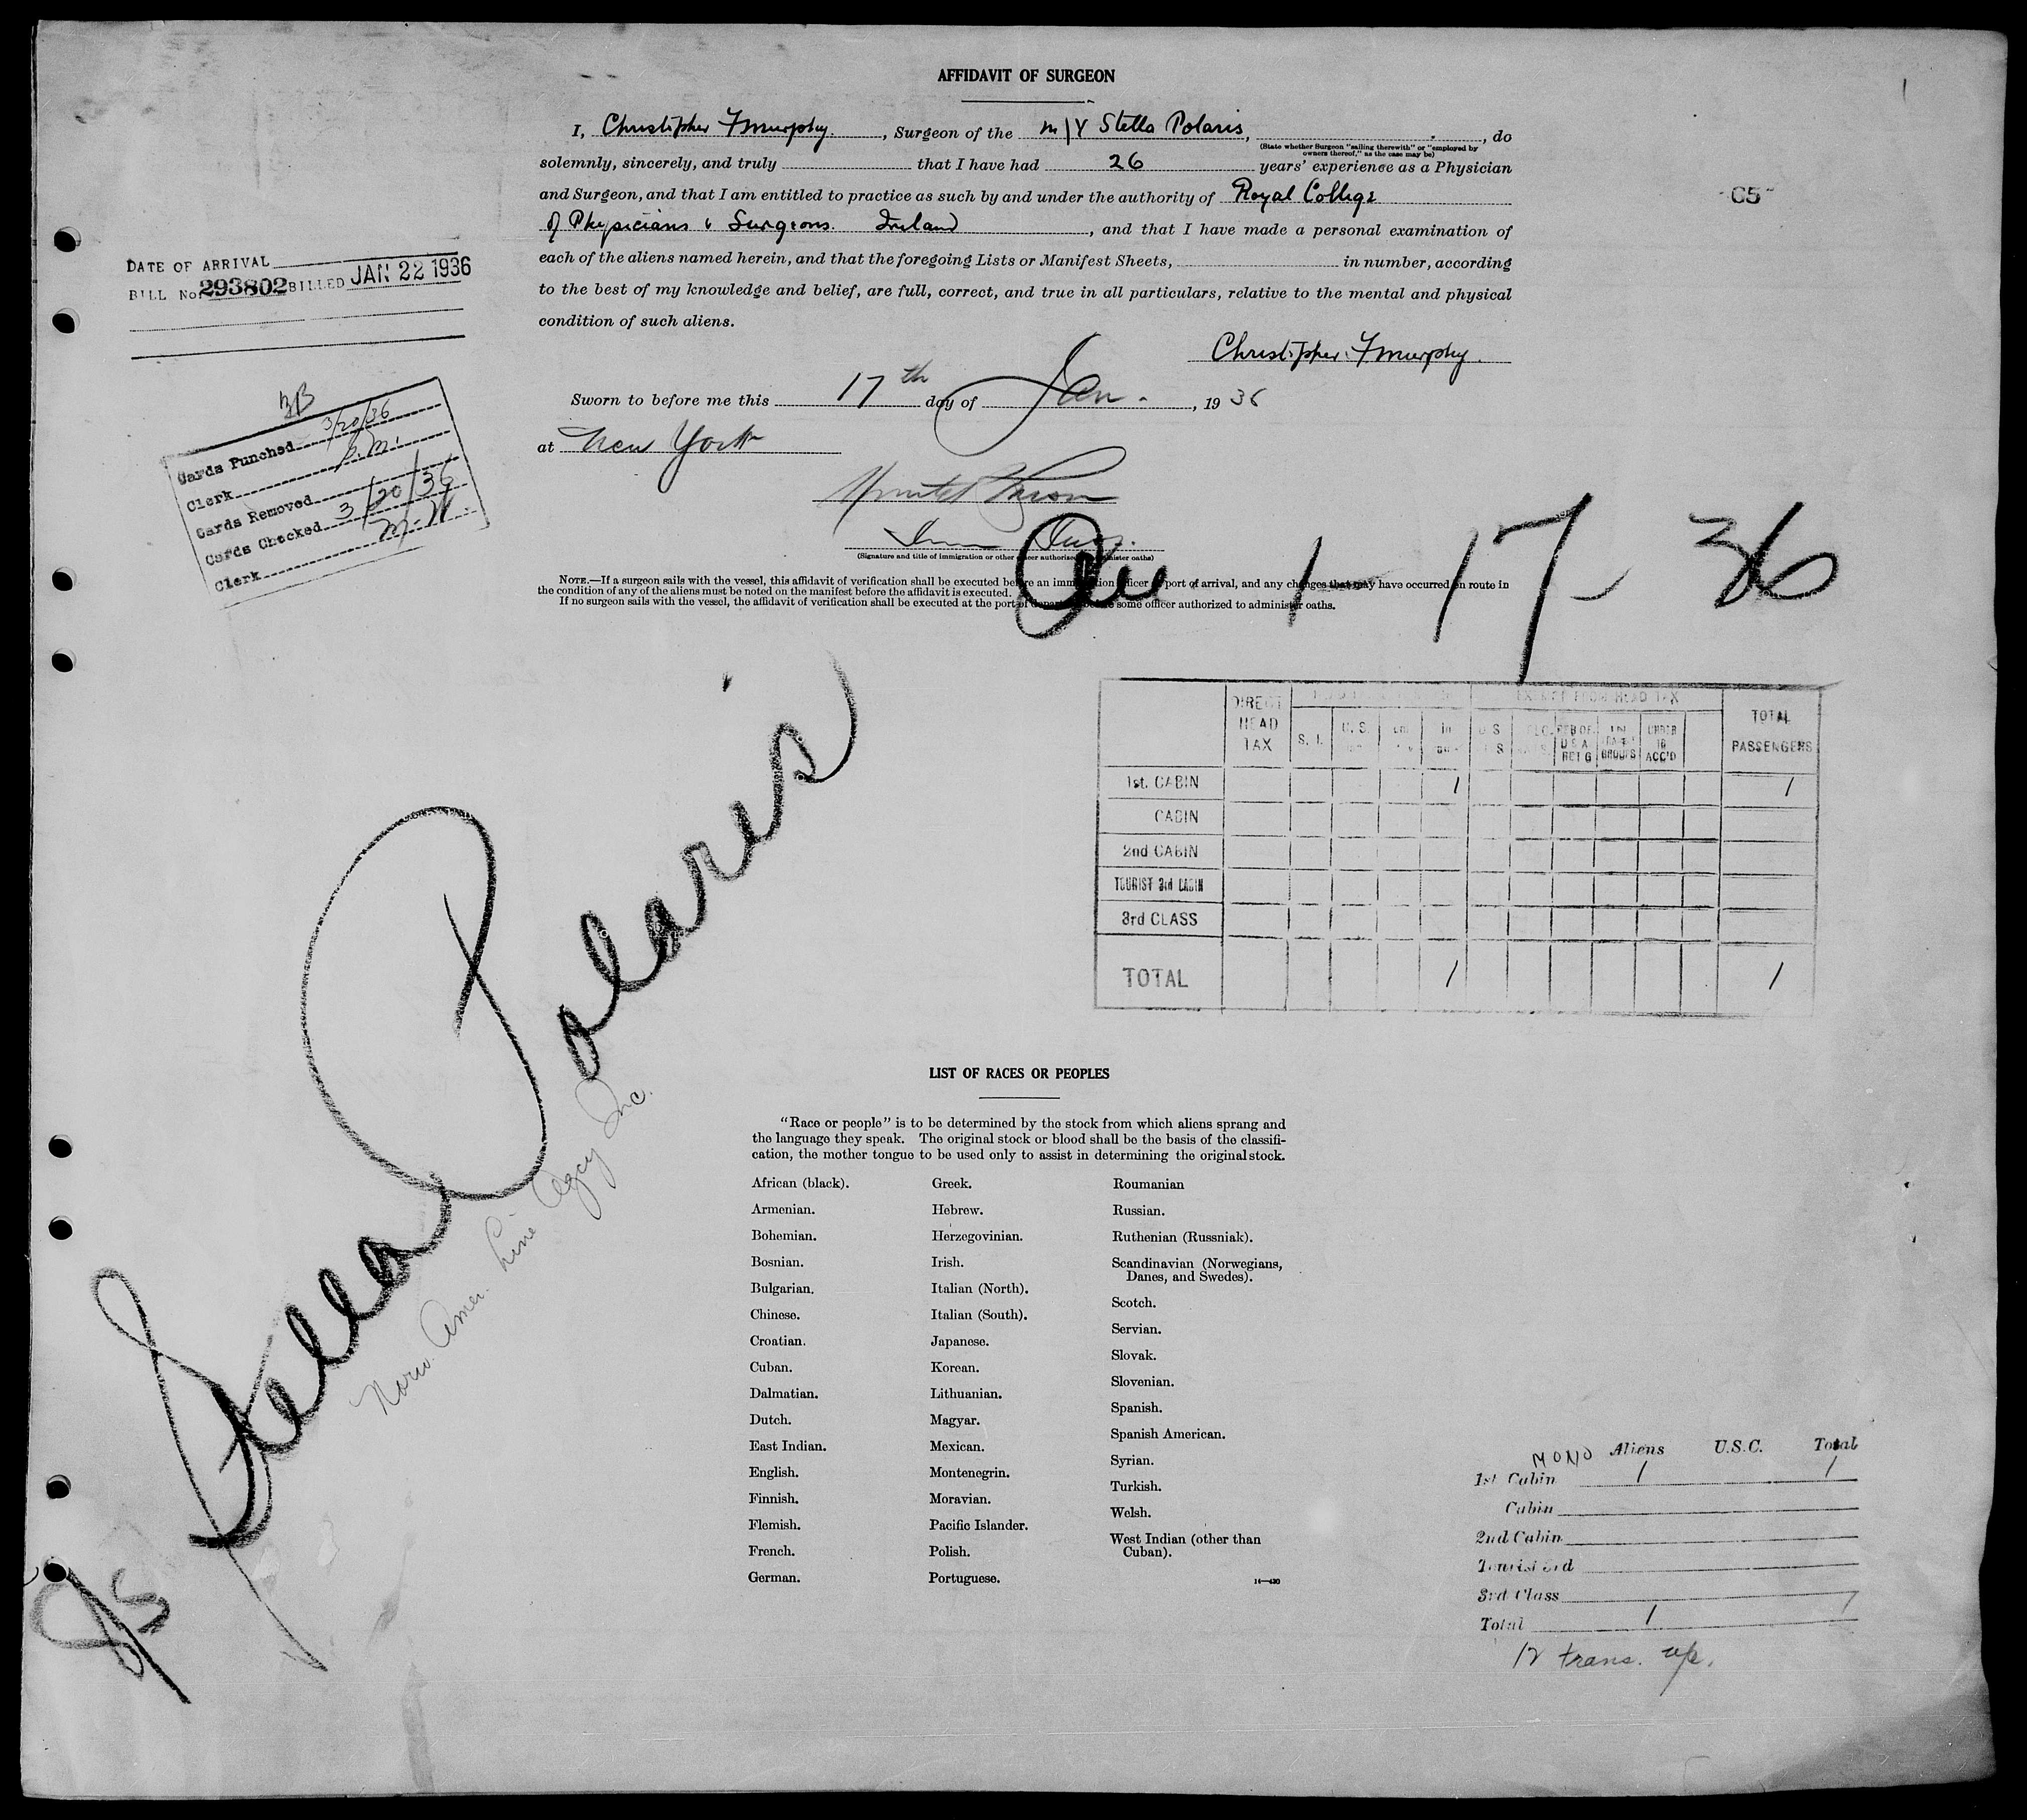 AFFIDAVIT OF SURGEON
I, Christopher F Murphy, Surgeon of the M/Y Stella Polaris, , do
(State whether Surgeon "sailing therewith" or "employed by
owners thereof," as the case may be)
solemnly, sincerely, and truly that I have had 26 years' experience as a Physician
and Surgeon, and that I am entitled to practice as such by and under the authority of Royal College
of Physicians & Surgeons. Ireland , and that I have made a personal examination of
each of the aliens named herein, and that the foregoing Lists or Manifest Sheets, in number, according
to the best of my knowledge and belief, are full, correct, and true in all particulars, relative to the mental and physical
condition of such aliens.
Christopher F Murphy.
Sworn to before me this 17th day of Jan. , 1936
at New York
(Signature and title of immigration or other officer authorized to administer oaths)
NOTE.—If a surgeon sails with the vessel, this affidavit of verification shall be executed before an immigration officer at port of arrival, and any changes that may have occurred en route in
the condition of any of the aliens must be noted on the manifest before the affidavit is executed.
If no surgeon sails with the vessel, the affidavit of verification shall be executed at the port of departure before some officer authorized to administer oaths.
1 - 17 - 36
DATE OF ARRIVAL
BILL No. 293802 BILLED JAN 22 1936
Cards Punched 3/20/36
Clerk
Cards Removed
Cards Checked 3/20/36
Clerk M.W.
Stella Polaris
Norw Amer. Line Agcy Inc.
DIRECT HEAD TAX
EXEMPT FROM HEAD TAX
TOTAL PASSENGERS
S. I.
U. S.
UNDER 16 ACC'D
1st. CABIN 1 1
CABIN
2nd CABIN
TOURIST 3rd CABIN
3rd CLASS
TOTAL 1 1
LIST OF RACES OR PEOPLES
"Race or people" is to be determined by the stock from which aliens sprang and
the language they speak. The original stock or blood shall be the basis of the classifi-
cation, the mother tongue to be used only to assist in determining the original stock.
African (black).
Armenian.
Bohemian.
Bosnian.
Bulgarian.
Chinese.
Croatian.
Cuban.
Dalmatian.
Dutch.
East Indian.
English.
Finnish.
Flemish.
French.
German.
Greek.
Hebrew.
Herzegovinian.
Irish.
Italian (North).
Italian (South).
Japanese.
Korean.
Lithuanian.
Magyar.
Mexican.
Montenegrin.
Moravian.
Pacific Islander.
Polish.
Portuguese.
Roumanian
Russian.
Ruthenian (Russniak).
Scandinavian (Norwegians,
Danes, and Swedes).
Scotch.
Servian.
Slovak.
Slovenian.
Spanish.
Spanish American.
Syrian.
Turkish.
Welsh.
West Indian (other than
Cuban).
14—430
Aliens U.S.C. Total
1st Cabin 1 1
Cabin
2nd Cabin
Tourist 3rd
3rd Class
Total 1 1
12 trans.